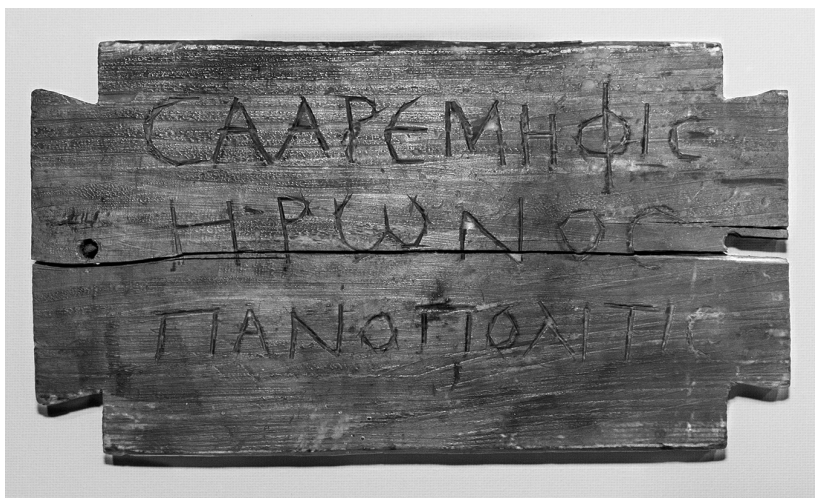 ϹΑΑΡΕΜΗΦΙϹ
ΗΡΩΝΟϹ
ΠΑΝΟΠΟΛΙΤΙϹ